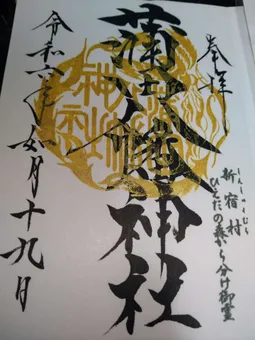 奉拝
しんしゅくむら
新宿村
ひえだの森から分け御霊
蒲田八幡神社
令和六年如月十九日